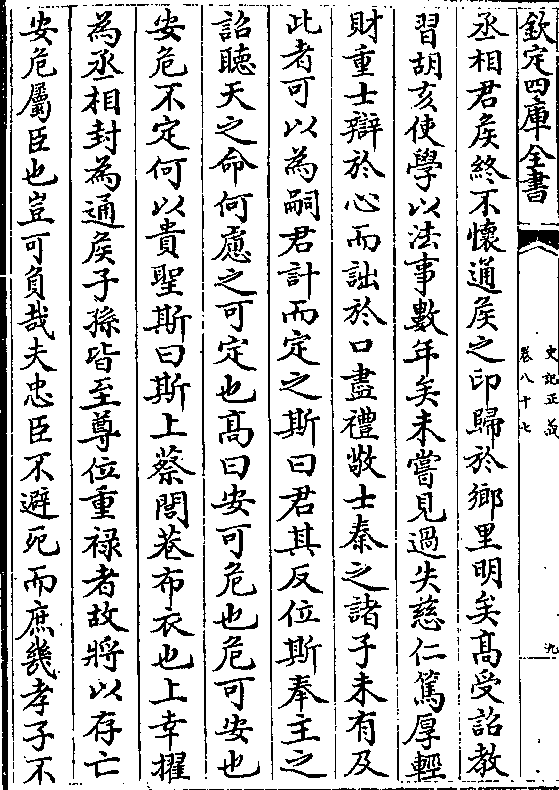 欽定四庫全書
史記正義
卷八十七
九
丞相君矦終不懷通矦之印歸於鄉里明矣髙受詔教
習胡亥使學以法事數年矣未嘗見過失慈仁篤厚輕
財重士辯於心而詘於口盡禮敬士秦之諸子未有及
此者可以為嗣君計而定之斯曰君其反位斯奉主之
詔聽天之命何慮之可定也髙曰安可危也危可安也
安危不定何以貴聖斯曰斯上蔡閭巷布衣也上幸擢
為丞相封為通矦子孫皆至尊位重禄者故將以存亡
安危屬臣也豈可負哉夫忠臣不避死而庶幾孝子不